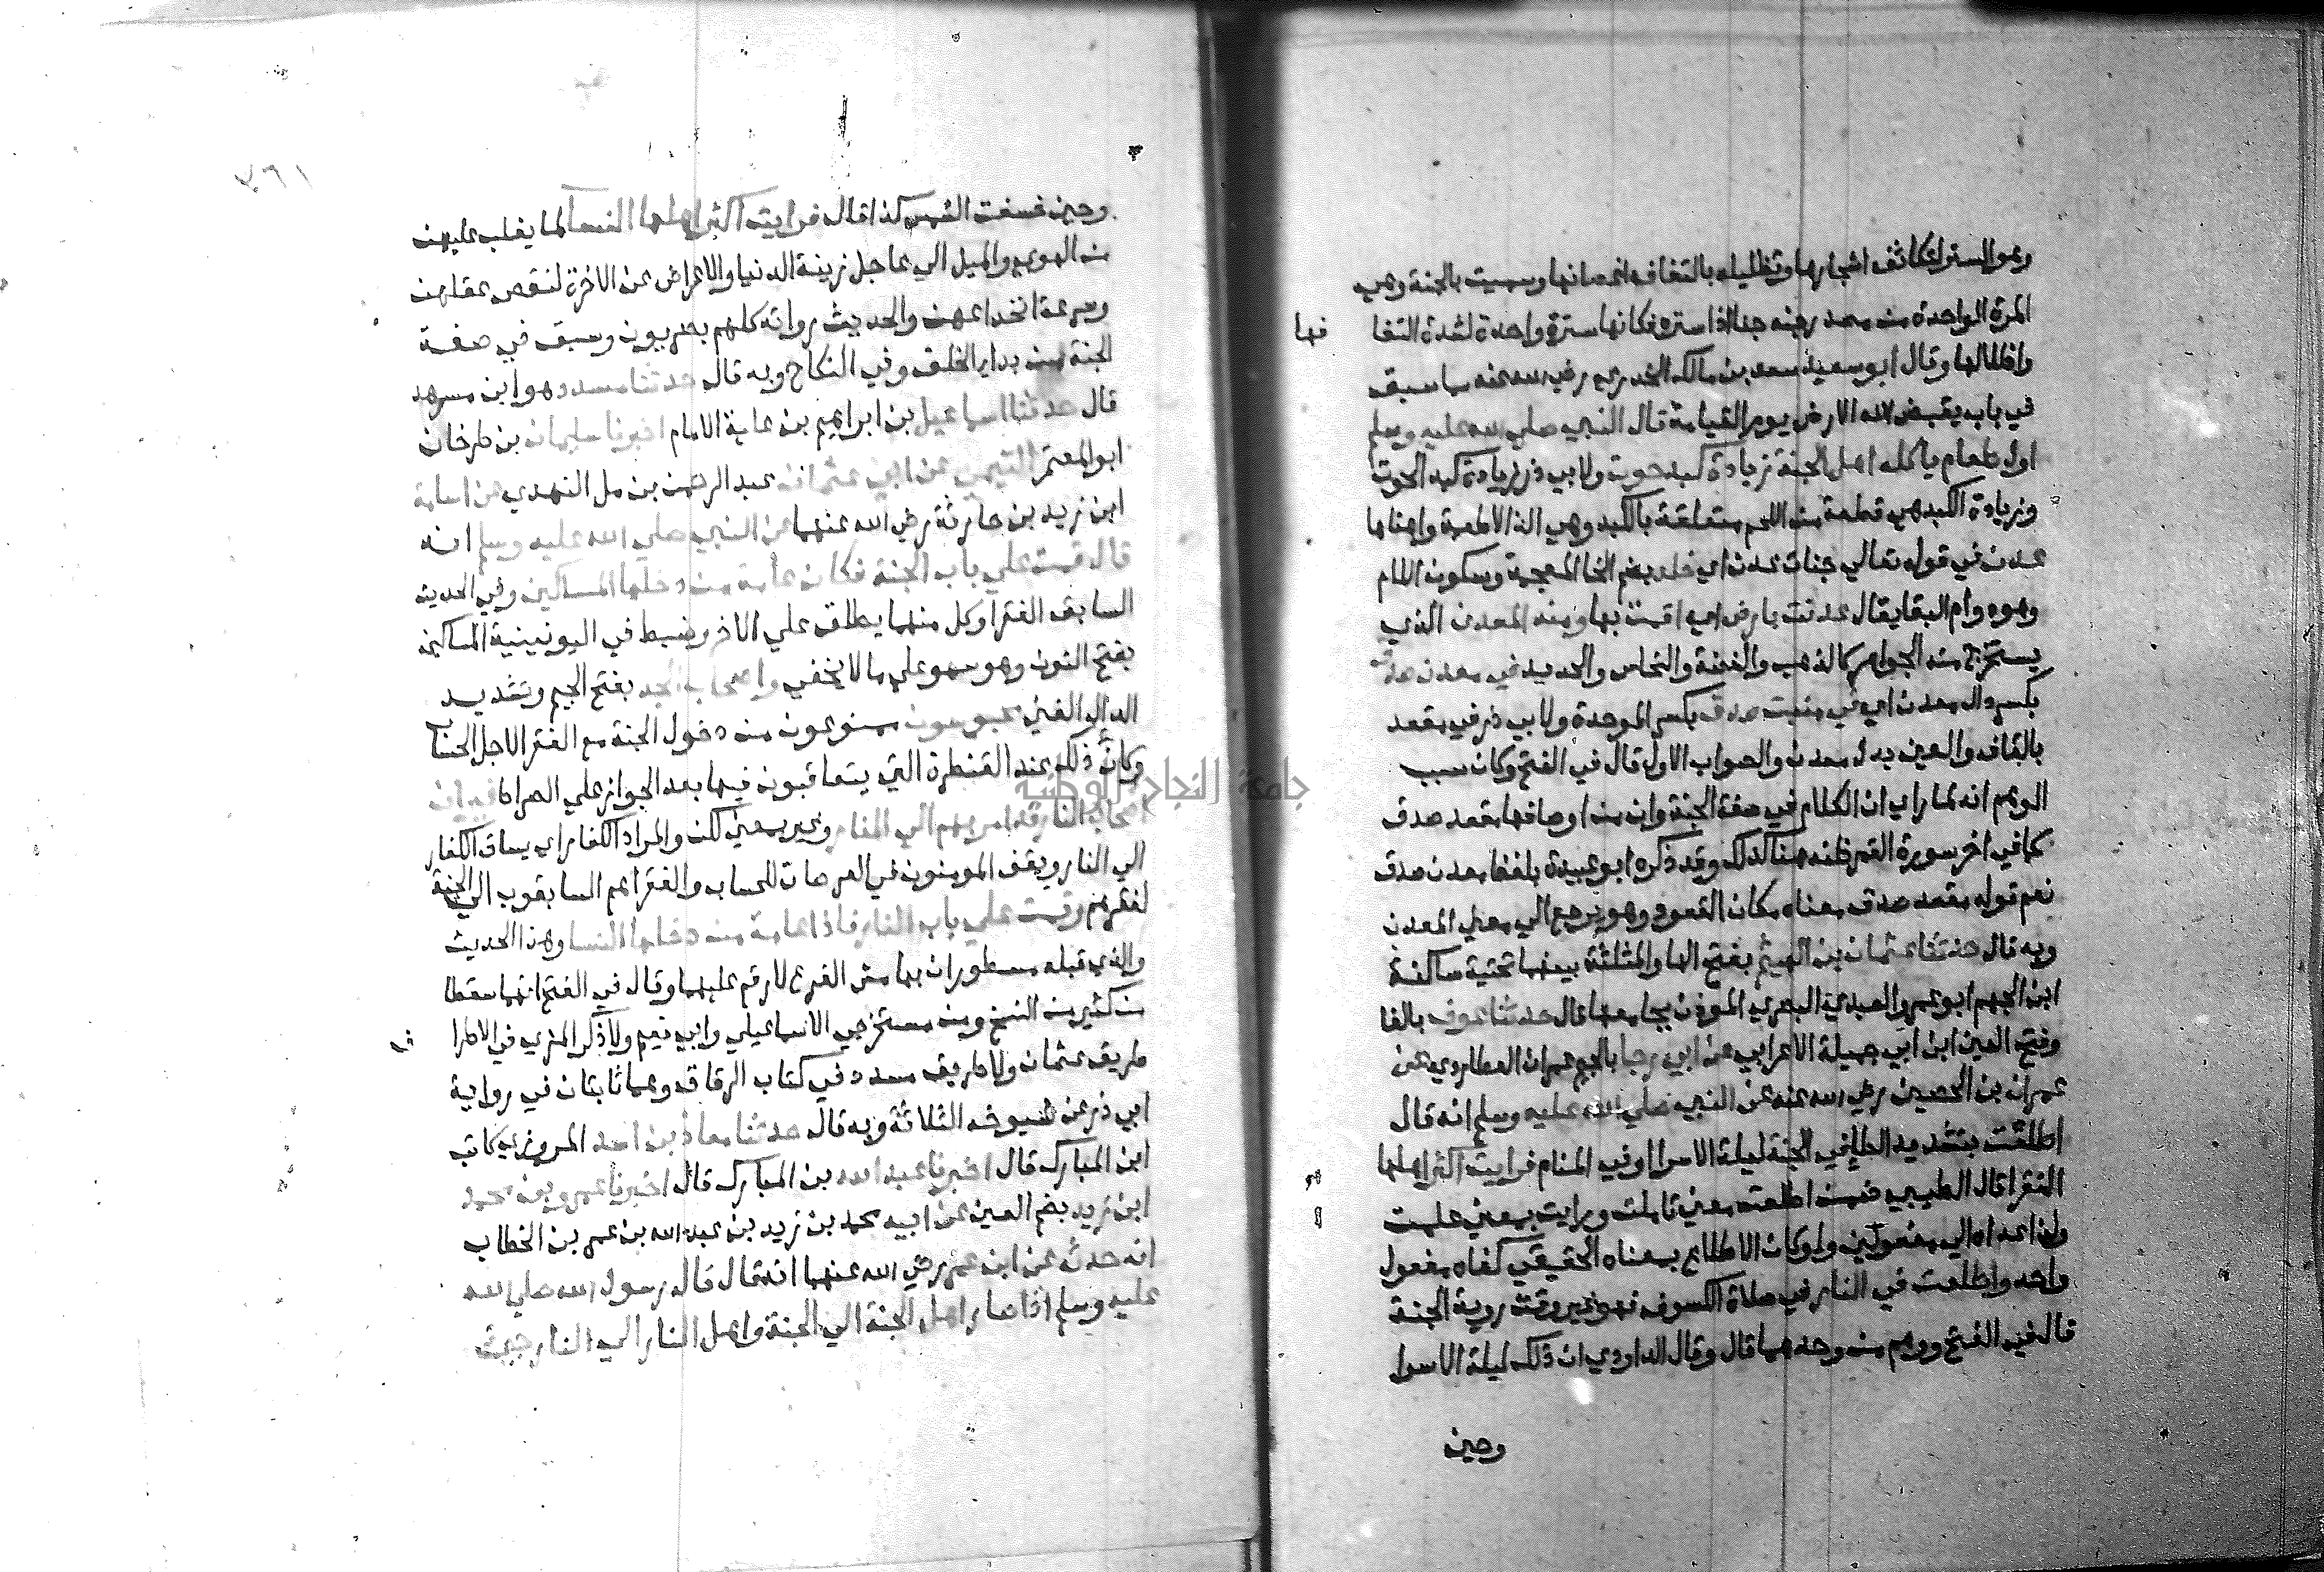 وهو الستر لتكاثف اشجارها وتظليلها بالتفاف اغصانها وسميت بالجنة وهي
المرة الواحدة من مصدر جنه جنا اذا ستره فكانها سترة واحدة لشدة التفا فها
واظلالها وقال ابو سعيد سعد بن مالك الخدري رضي الله عنه مما سبق
في باب يقبض الله الارض يوم القيامة قال النبي صلي الله عليه وسلم
اول طعام ياكله اهل الجنة زيادة كبد حوت ولابي ذر زيادة كبد الحوت
وزيادة الكبد هي قطعة من اللحم متعلقة بالكبد وهي الذ الاطعمة واهناها
عدن في قوله تعالي جنات عدن اي خلد بضم الخا المعجمة وسكون اللام
وهو دوام البقا يقال عدنت بارض اي اقمت بها ومنه المعدن الذي
يستخرج منه الجواهر كالذهب والفضة والنحاس والحديد في معدن صدق
بكسر دال معدن اي في منبت صدق بكسر الموحدة ولابي ذر في مقعد
بالقاف والعين بدل معدن والصواب الاول قال في الفتح وكان سبب
الوهم انه لما راي ان الكلام في صفة الجنة وان من اوصافها مقعد صدق
كما في اخر سورة القمر ظنه هنا كذلك وقد ذكره ابو عبيدة بلفظ معدن صدق
نعم قوله مقعد صدق معناه مكان القعود وهو يرجع الي معني المعدن
وبه قال حدثنا عثمان بن الهيثم بفتح الها والمثلثة بينهما تحتية ساكنة
ابن الجهم ابو عمرو العبدي البصري الموذن بجامعها قال حدثنا عوف بالفا
وفتح العين ابن ابي جميلة الاعرابي عن ابي رجا بالجيم عمران العطاردي عن
عمران بن الحصين رضي الله عنه عن النبي صلي الله عليه وسلم انه قال
اطلعت بتشديد الطا في الجنة ليلة الاسرا او في المنام فرايت اكثر اهلها
الفقرا قال الطيبي ضمن اطلعت معني تاملت ورايت بمعني علمت
ولذا عداه الي مفعولين ولو كان الاطلاع بمعناه الحقيقي كفاه مفعول
واحد واطلعت في النار في صلاة الكسوف فهو غير وقت روية الجنة
قال في الفتح ووهم من وحدهما قال وقال الداودي ان ذلك ليلة الاسرا
وحين
٣٦١
وحين خسفت الشمس كذا قال فرايت اكثر اهلها النسآ لما يغلب عليهن
من الهوي والميل الي عاجل زينة الدنيا والاعراض عن الاخرة لنقص عقلهن
وسرعة انخداعهن والحديث رواته كلهم بصريون وسبق في صفة
الجنة من بدا الخلق وفي النكاح وبه قال حدثنا مسدد هو ابن مسرهد
قال حدثنا اسماعيل بن ابراهيم بن علية الامام اخبرنا سليمان بن طرخان
ابو المعتمر التيمي عن ابي عثمان عبد الرحمن بن مل النهدي عن اسامة
ابن زيد بن حارثة رضي الله عنهما عن النبي صلي الله عليه وسلم انه
قال قمت علي باب الجنة فكان عامة من دخلها المساكين وفي الحديث
السابق الفقرا وكل منهما يطلق علي الاخر وضبط في اليونينية المساكين
بفتح النون وهو سهو علي ما لا يخفي واصحاب الجد بفتح الجيم وتشديد
الدال الغني محبوسون ممنوعون من دخول الجنة مع الفقرا لاجل الحساب
وكان ذلك عند القنطرة التي يتعاقبون فيها بعد الجواز علي الصراط غير ان
اصحاب النار قد امر بهم الي النار وغير بمعني لكن والمراد الكفار اي يساق الكفار
الي النار ويقف المومنون في العرصات للحساب والفقرا هم السابقون الي الجنة
لفقرهم وقمت علي باب النار فاذا عامة من دخلها النسا وهذا الحديث
والذي قبله مسطوران بهامش الفرع لا رقم عليهما وقال في الفتح انهما سقطا
من كثير من النسخ ومن مستخرجي الاسماعيلي وابي نعيم ولا ذكر المزي في الاطرا ف
طريق عثمان ولا طريق مسدد في كتاب الرقاق وهما ثابتان في رواية
ابي ذر عن شيوخه الثلاثة وبه قال حدثنا معاذ بن اسد المروزي كاتب
ابن المبارك قال اخبرنا عبد الله بن المبارك قال اخبرنا عمر بن محمد
ابن زيد بضم العين عن ابيه محمد بن زيد بن عبد الله بن عمر بن الخطاب
انه حدثه عن ابن عمر رضي الله عنهما انه قال قال رسول الله صلي الله
عليه وسلم اذا صار اهل الجنة الي الجنة واهل النار الي النار جيئ
جامعة النجاح الوطنية